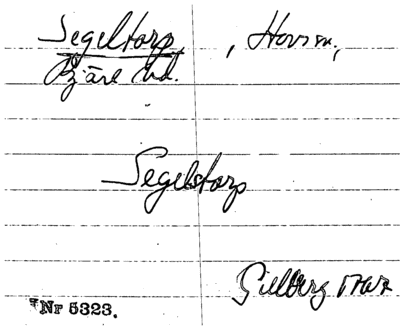 Segeltorp, Hov sn,
Bjäre hd.
Segelstorp
Gillberg
Nr 5323.